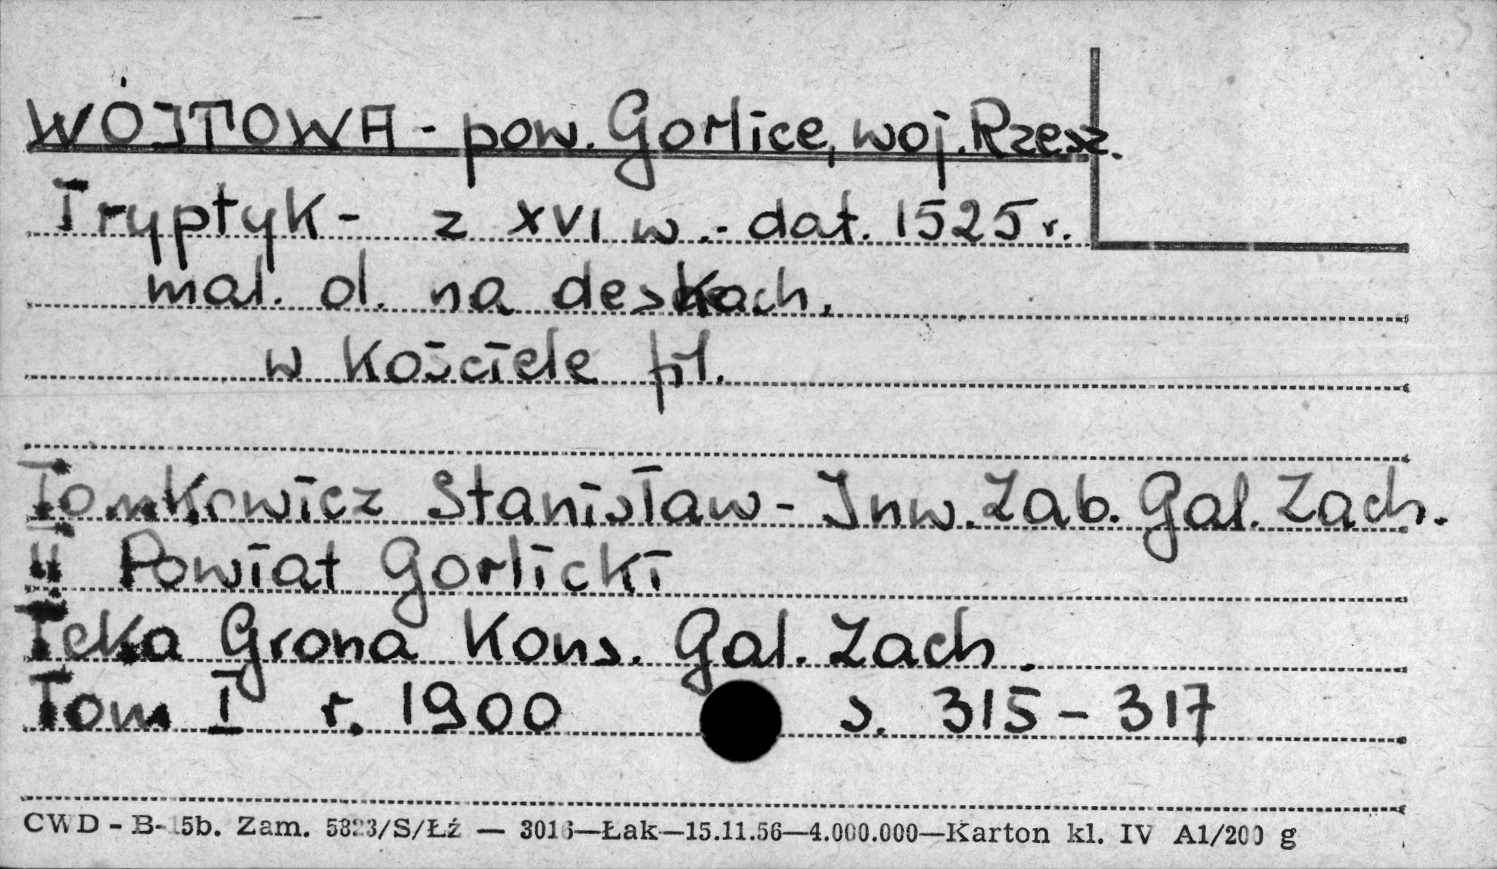 WÓJTOWA - pow. Gorlice, woj. Rzesz.
Tryptyk - z XVI w. - dat. 1525 r.
mal. ol. na deskach,
w Kościele fil.
Tomkowicz Stanisław - Inw. Zab. Gal. Zach.
" Powiat Gorlicki
Teka Grona Kons. Gal. Zach.
Tom I r. 1900 s. 315 - 317
CWD - B-15b. Zam. 5823/S/Łź — 3016—Łak—15.11.56—4.000.000—Karton kl. IV A1/200 g